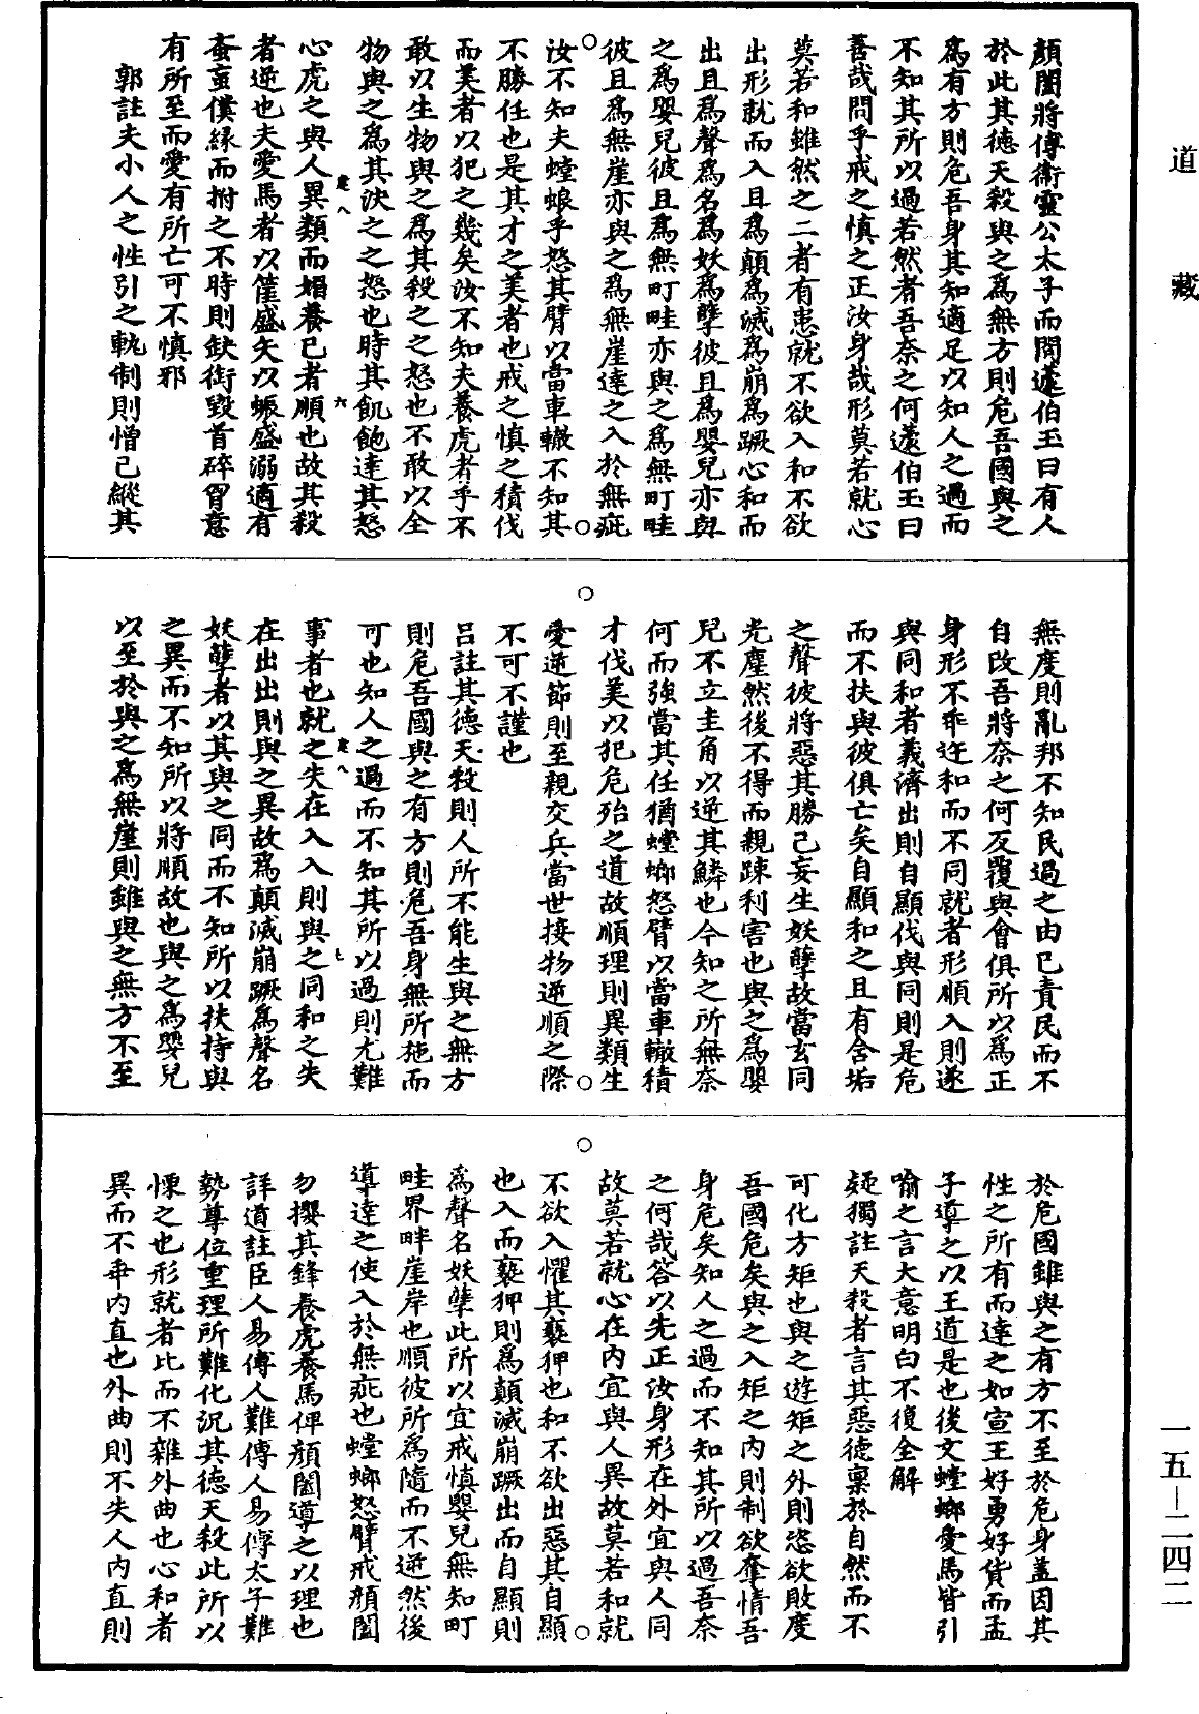 道藏
顏闔將傅衛靈公太子而問蘧伯玉曰有人
於此其德天殺與之爲無方則危吾國與之
爲有方則危吾身其知適足以知人之過而
不知其所以過若然者吾奈之何蘧伯玉曰
善哉問乎戒之慎之正汝身哉形莫若就心
莫若和雖然之二者有患就不欲入和不欲
出形就而入且爲顛爲滅爲崩爲蹶心和而
出且爲聲爲名爲妖爲孽彼且爲嬰兒亦與
之爲嬰兒彼且爲無町畦亦與之爲無町畦
彼且爲無崖亦與之爲無崖達之入於無疵
汝不知夫螳蜋乎怒其臂以當車轍不知其
不勝任也是其才之美者也戒之慎之積伐
而美者以犯之幾矣汝不知夫養虎者乎不
敢以生物與之爲其殺之之怒也不敢以全
物與之爲其決之之怒也時其飢飽達其怒
心虎之與人異類而媚養己者順也故其殺
者逆也夫愛馬者以筐盛矢以蜄盛溺適有
蚉䖟僕緣而拊之不時則缺銜毀首碎胷意
有所至而愛有所亡可不慎邪
郭註夫小人之性引之軌制則憎己縱其
無度則亂邦不知民過之由己責民而不
自改吾將奈之何反覆與會俱所以爲正
身形不乖迕和而不同就者形順入則遂
與同和者義濟出則自顯伐與同則是危
而不扶與彼俱亡矣自顯和之且有含垢
之聲彼將惡其勝己妄生妖孽故當玄同
光塵然後不得而親踈利害也與之爲嬰
兒不立圭角以逆其鱗也今知之所無奈
何而強當其任猶螳螂怒臂以當車轍積
才伐美以犯危殆之道故順理則異類生
愛逆節則至親交兵當世接物逆順之際
不可不謹也
呂註其德天殺則人所不能生與之無方
則危吾國與之有方則危吾身無所施而
可也知人之過而不知其所以過則尤難
事者也就之失在入入則與之同和之失
在出出則與之異故爲顛滅崩蹶爲聲名
妖孽者以其與之同而不知所以扶持與
之異而不知所以將順故也與之爲嬰兒
以至於與之爲無崖則雖與之無方不至
於危國雖與之有方不至於危身蓋因其
性之所有而達之如宣王好勇好貨而孟
子導之以王道是也後文螳螂愛馬皆引
喻之言大意明白不復全解
疑獨註天殺者言其惡德稟於自然而不
可化方矩也與之遊矩之外則恣欲敗度
吾國危矣與之入矩之內則制欲奪情吾
身危矣知人之過而不知其所以過吾奈
之何哉答以先正汝身形在外宜與人同
故莫若就心在內宜與人異故莫若和就
不欲入懼其褻狎也和不欲出惡其自顯
也入而褻狎則爲顛滅崩蹶出而自顯則
爲聲名妖孽此所以宜戒慎嬰兒無知町
畦界畔崖岸也順彼所爲隨而不逆然後
導達之使入於無疵也螳螂怒臂戒顏闔
勿攖其鋒養虎養馬俾顏闔導之以理也
詳道註臣人易傅人難傅人易傅太子難
勢尊位重理所難化況其德天殺此所以
慄之也形就者比而不雜外曲也心和者
異而不乖內直也外曲則不失人內直則
一五—二四二